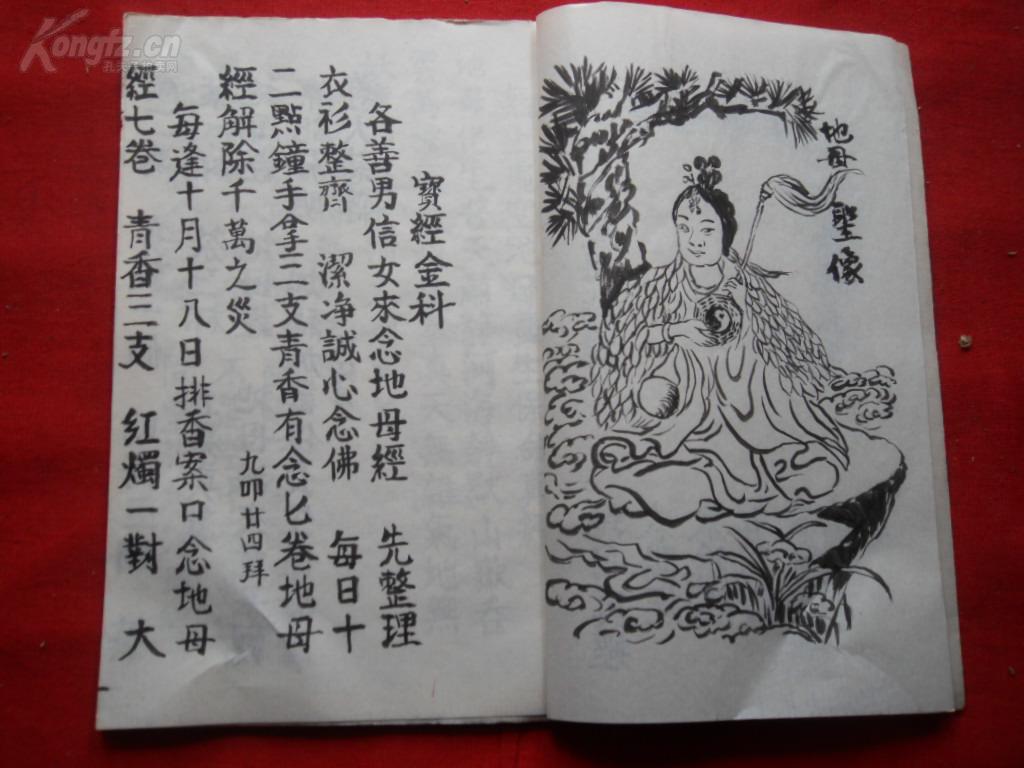 地母 聖像
寶經金科
各善男信女來念地母經 先整理
衣衫整齊 潔净誠心念佛 每日十
二點鐘手拿三支青香有念匕卷地母
經解除千萬之災 九叩廿四拜
每逢十月十八日排香案口念地母
經七卷 青香三支 红燭一對 大
Kongfz.cn
孔夫子拍卖网